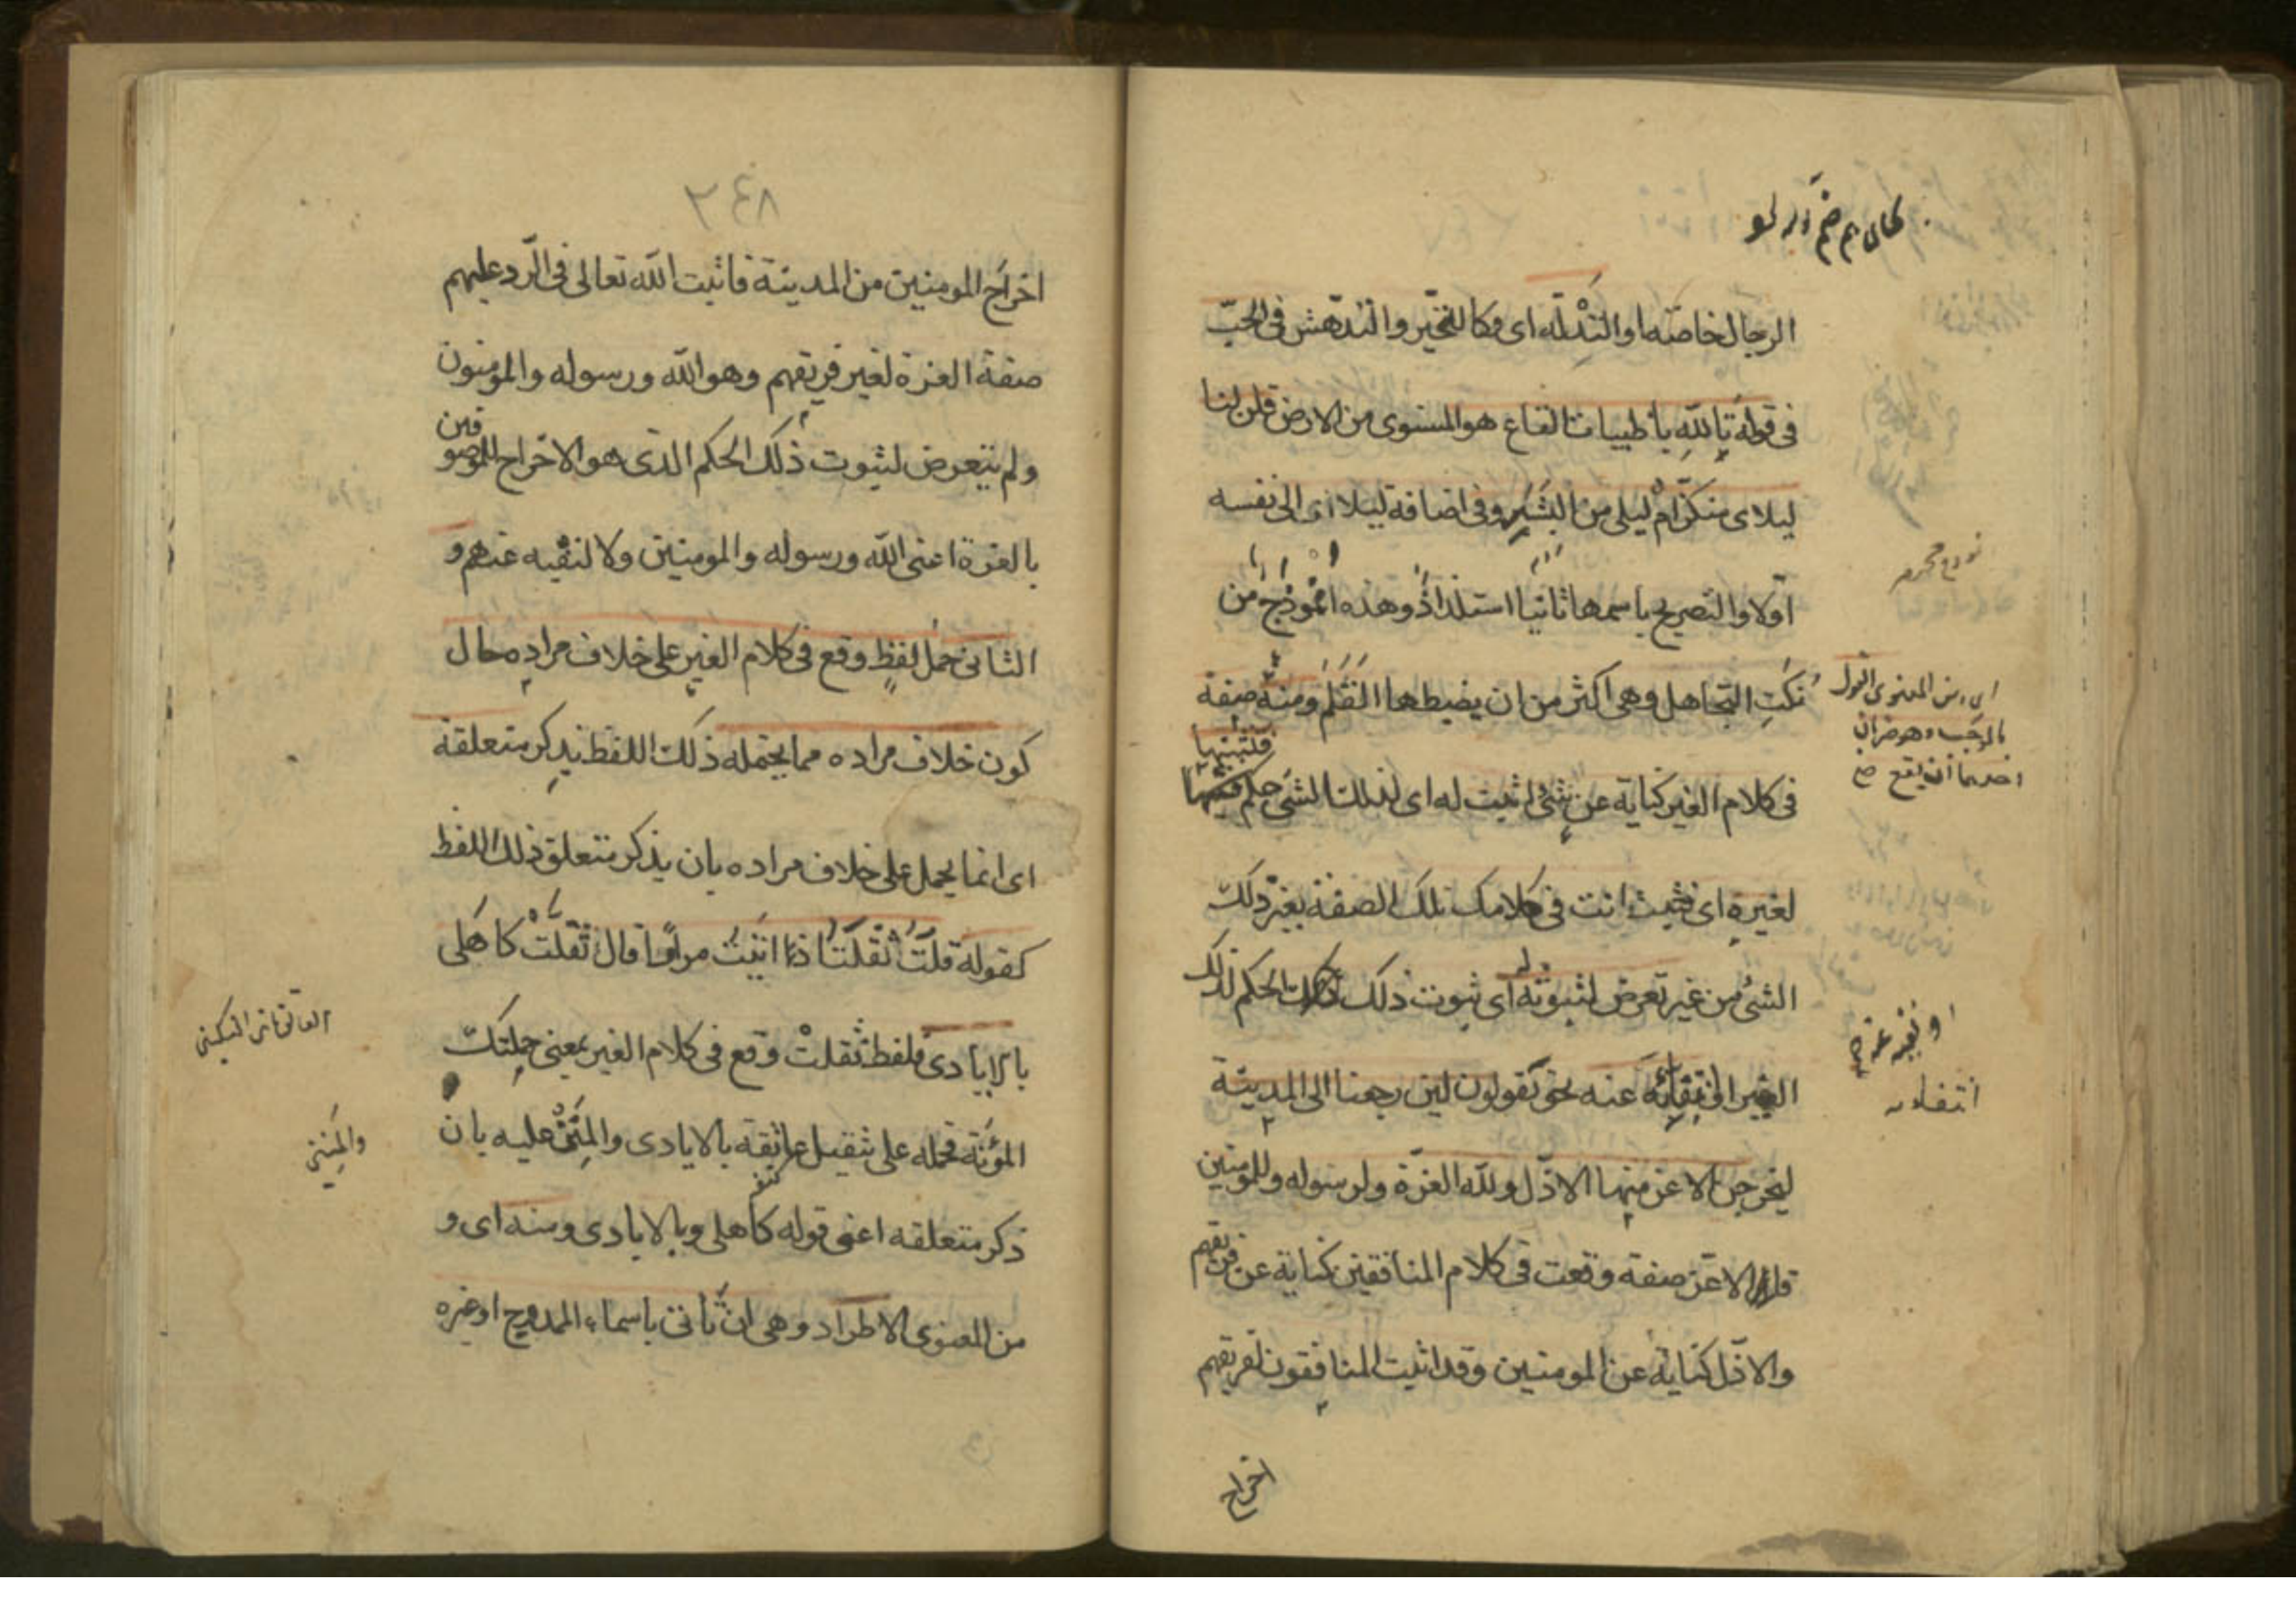 الرجال خاصّة او التَدْلّه اى وكالتحيّر والتدهّش فى الحبّ
فى قولهٖ تاللّٰهِ يا ظبيات القاع هو المستوى من الارض قلن لنا
ليلاى منكنّ ام ليلى من البَشَرِ وفى اضافة ليلا اى الى نفسه
اولا والتصريح باسمها ثانيا استلذاذ وهذه انموذج من
نكَتِ التجاهل وهى اكثر من ان يضبطها القَلَم ومنه صفة
فى كلام الغير كناية عن شئ اثبت له اى لذلك الشئ حكم فتثبتها
لغيرهٖ اى فتثبت انت فى كلامك تلك الصفة بغير ذلك
الشئ من غير تعرض لثبوته له اى ثبوت ذلك الحكم لذلك
الغير او انتفائه عنه نحو يقولون لئن رجعنا الى المدينة
ليخرجن الاعز منها الاذل وللّه العزّة ولرسوله وللمومنين
فالاعزّ صفة وقعت فى كلام المنافقين كناية عن فريقهم
والاذل كناية عن المومنين وقد اثبت المنافقون لفريقهم
اخراج
اى من المعنوى القول
بالموجب وهو ضربان
احدهما ان يقع صح
او نفيه عنه صح
انتفاء
٢٤٨
اخراج المومنين من المدينة فاثبت اللّه تعالى فى الرّد عليهم
صفة العزة لغير فريقهم وهو اللّه ورسوله والمومنون
ولم يتعرض لثبوت ذلك الحكم الذى هو الاخراج للموصوفين
بالعزة اعنى اللّه ورسوله والمومنين ولا لنفيه عنهم و
الثانى حمل لفظٍ وقع فى كلام الغير على خلاف مرادهٖ حال
كون خلاف مراده مما يحتمله ذلك اللفظ بذكر متعلقة
اى انما يحمل على خلاف مراده بان يذكر متعلق ذلك اللفظ
كقولهٖ قلتُ ثقلتُ اذا اتيتُ مرارًا قال ثقّلتْ كاهلى
بالايادى فلفظ ثقلت وقع فى كلام الغير بمعنى حملتك
المؤنة فحمله على تثقيل عاتقه بالايادى والمِنَنْ عليه بان
ذكر متعلقه اعنى قوله كاهلى وبالايادى ومنه اى و
من المعنوى الاطراد وهى ان تاتى باسماء الممدوح او غيره
والمِنَنِ